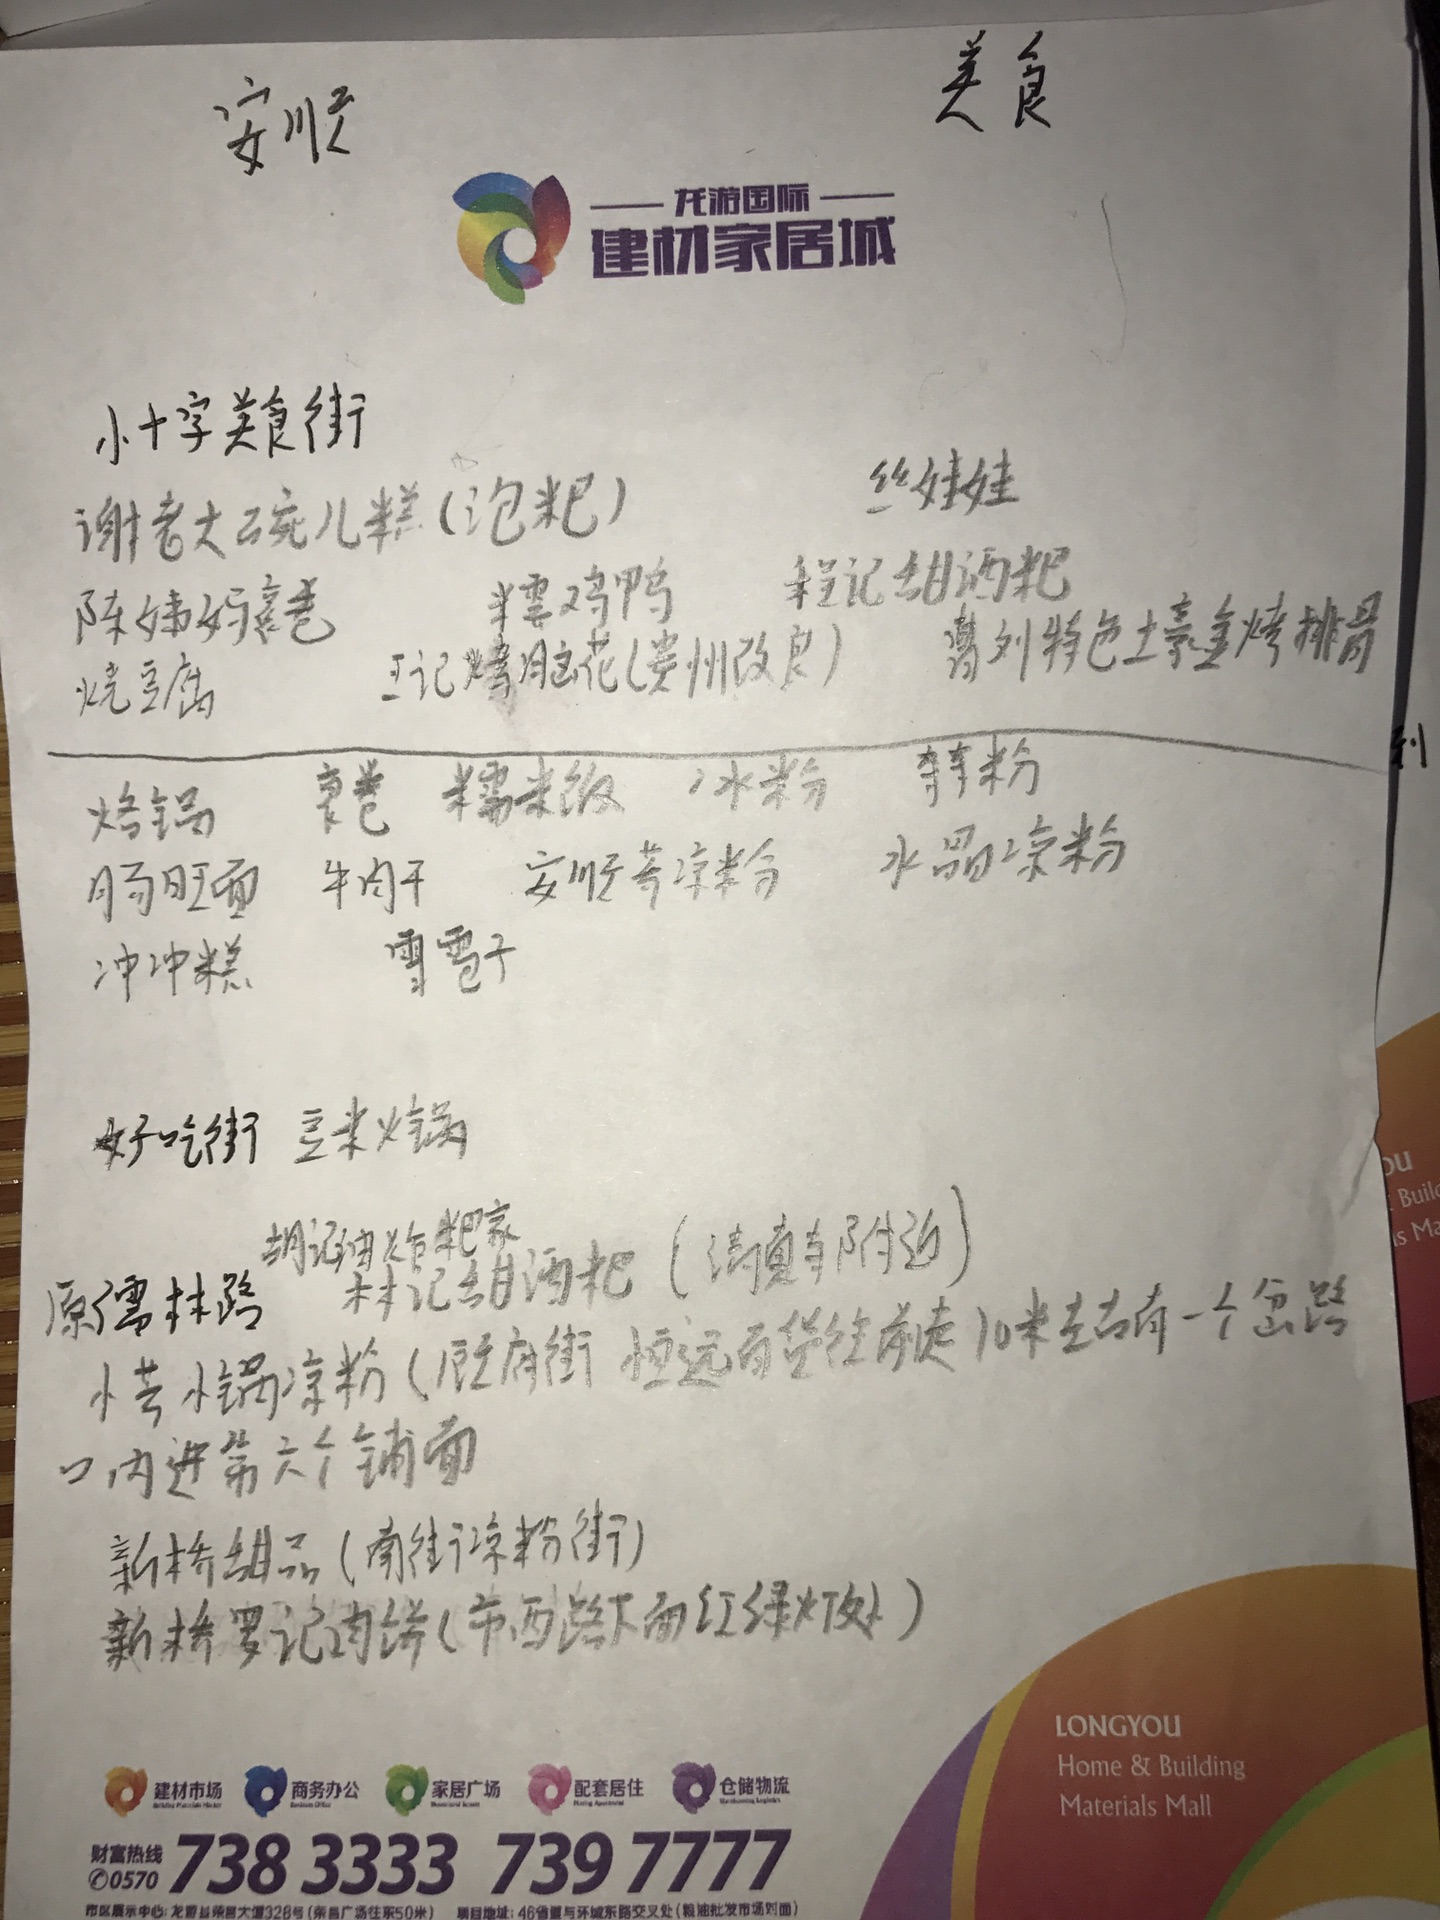 安顺 美食
龙游国际
建材家居城
小十字美食街
谢老大碗儿糕（泡粑） 丝娃娃
陈姨妈裹卷 糯鸡鸭 程记甜酒粑
烧豆腐 王记烤脑花（贵州改良） 特色土豪金烤排骨
到
烙锅 裹卷 糯米饭 冰粉 粉
肠旺面 牛肉干 安顺荞凉粉 水晶凉粉
冲冲糕 雪雹子
好吃街 豆米火锅
胡记油炸粑家
原儒林路 林记甜酒粑（清真寺附近）
小荞小锅凉粉（顾府街 恒远百货往前走10米左右有一个岔路
口内进第六个铺面
新桥甜品（南街凉粉街）
新桥罗记肉饼（市西路下面红绿灯处）
LONGYOU
Home & Building
Materials Mall
建材市场 商务办公 家居广场 配套居住 仓储物流
财富热线
0570 738 3333 739 7777
市区展示中心：龙游县荣昌大道328号（荣昌广场往东50米） 项目地址：46省道与环城东路交叉处（粮油批发市场对面）